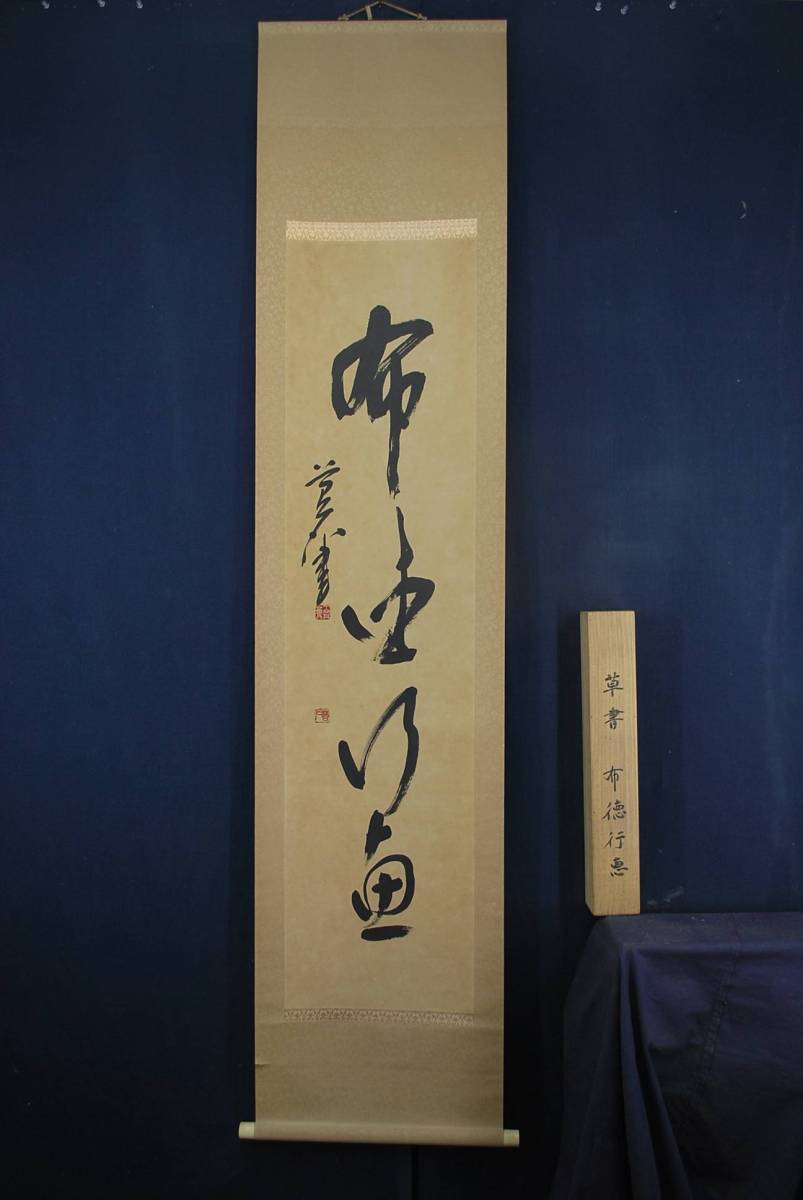 布徳行恵
草書 布徳行恵